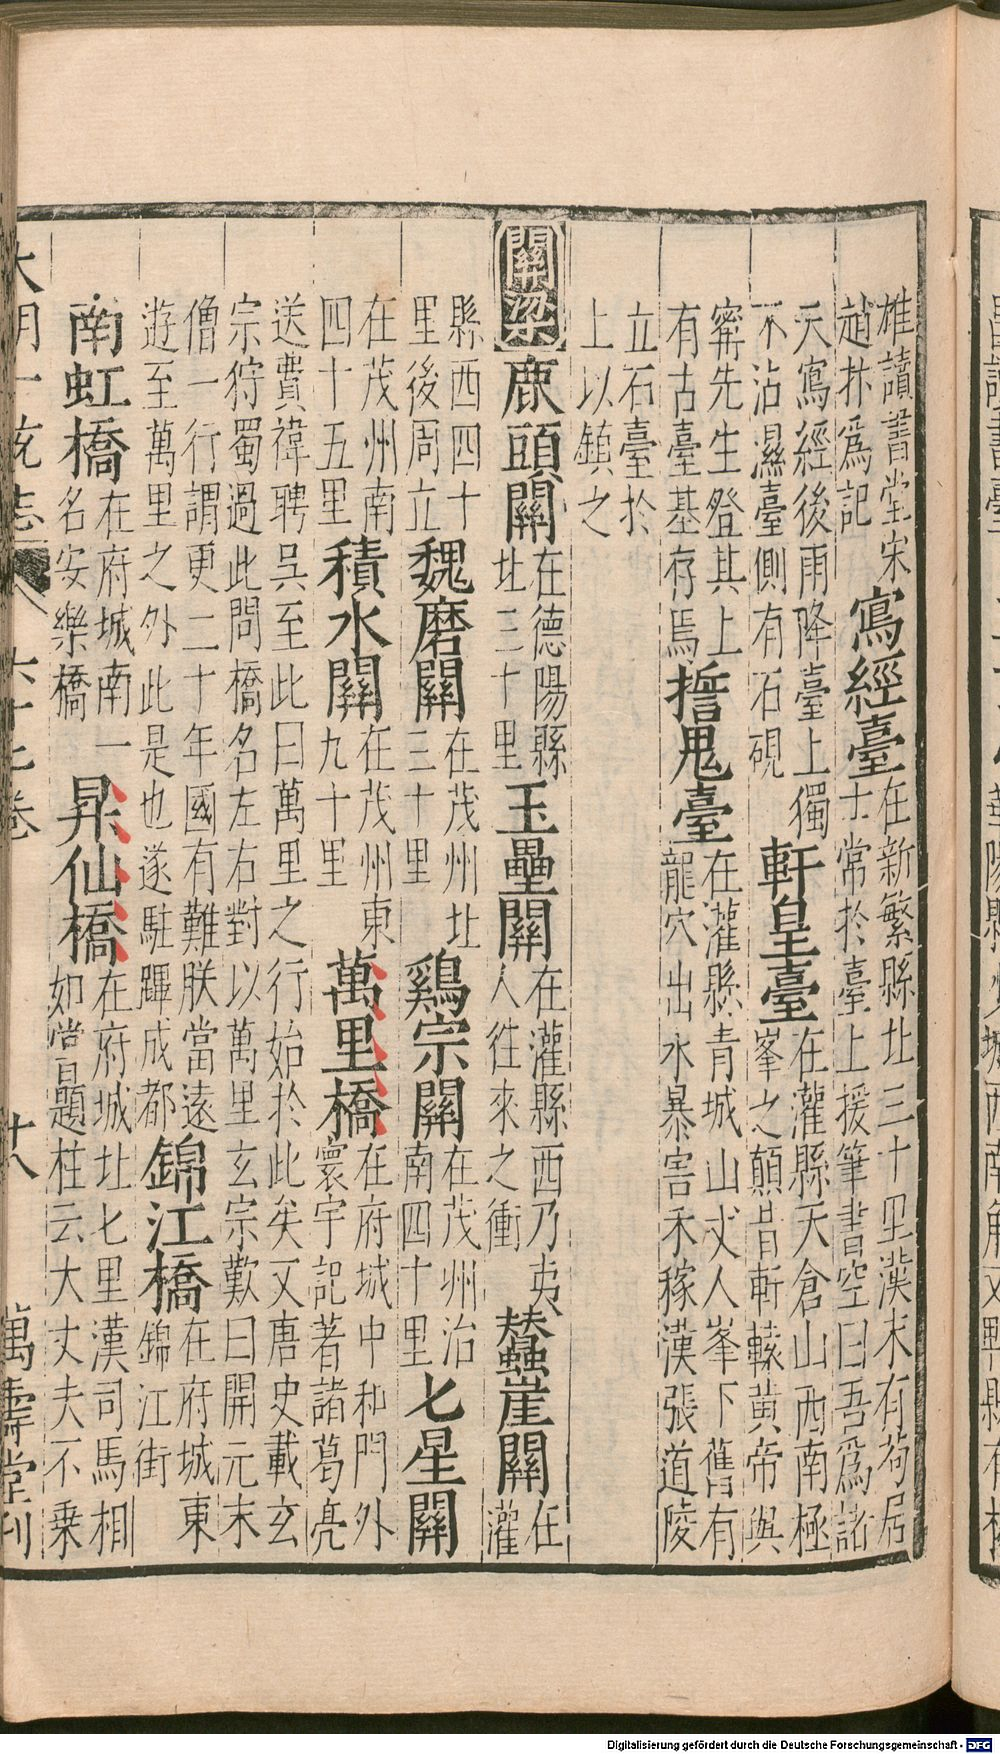 雄讀書堂宋
趙抃為記
寫經臺
在新繁縣北三十里漢末有荷居
士常於臺上援筆書空曰吾為諸
天寫經後雨降臺上獨
不沾濕臺側有石硯
軒皇臺
在灌縣天倉山西南極
峯之顛昔軒轅黃帝與
甯先生登其上
有古臺基存焉
誓鬼臺
在灌縣青城山丈人峯下舊有
龍穴出水暴害禾稼漢張道陵
立石臺於
上以鎮之
關梁
鹿頭關
在德陽縣
北三十里
玉壘關
在灌縣西乃夷
人往來之衝
蠶崖關
在灌
縣西四十
里後周立
魏磨關
在茂州北
三十里
鷄宗關
在茂州治
南四十里
七星關
在茂州南
四十五里
積水關
在茂州東
九十里
萬里橋
在府城中和門外
寰宇記著諸葛亮
送費禕聘吳至此曰萬里之行始於此矣又唐史載玄
宗狩蜀過此問橋名左右對以萬里玄宗歎曰開元末
僧一行謂更二十年國有難朕當遠
遊至萬里之外此是也遂駐蹕成都
錦江橋
在府城東
錦江街
南虹橋
在府城南一
名安樂橋
昇仙橋
在府城北七里漢司馬相
如嘗題柱云大丈夫不乘
大明一統志 六十七卷 十八 萬壽堂刊
Digitalisierung gefördert durch die Deutsche Forschungsgemeinschaft - DFG